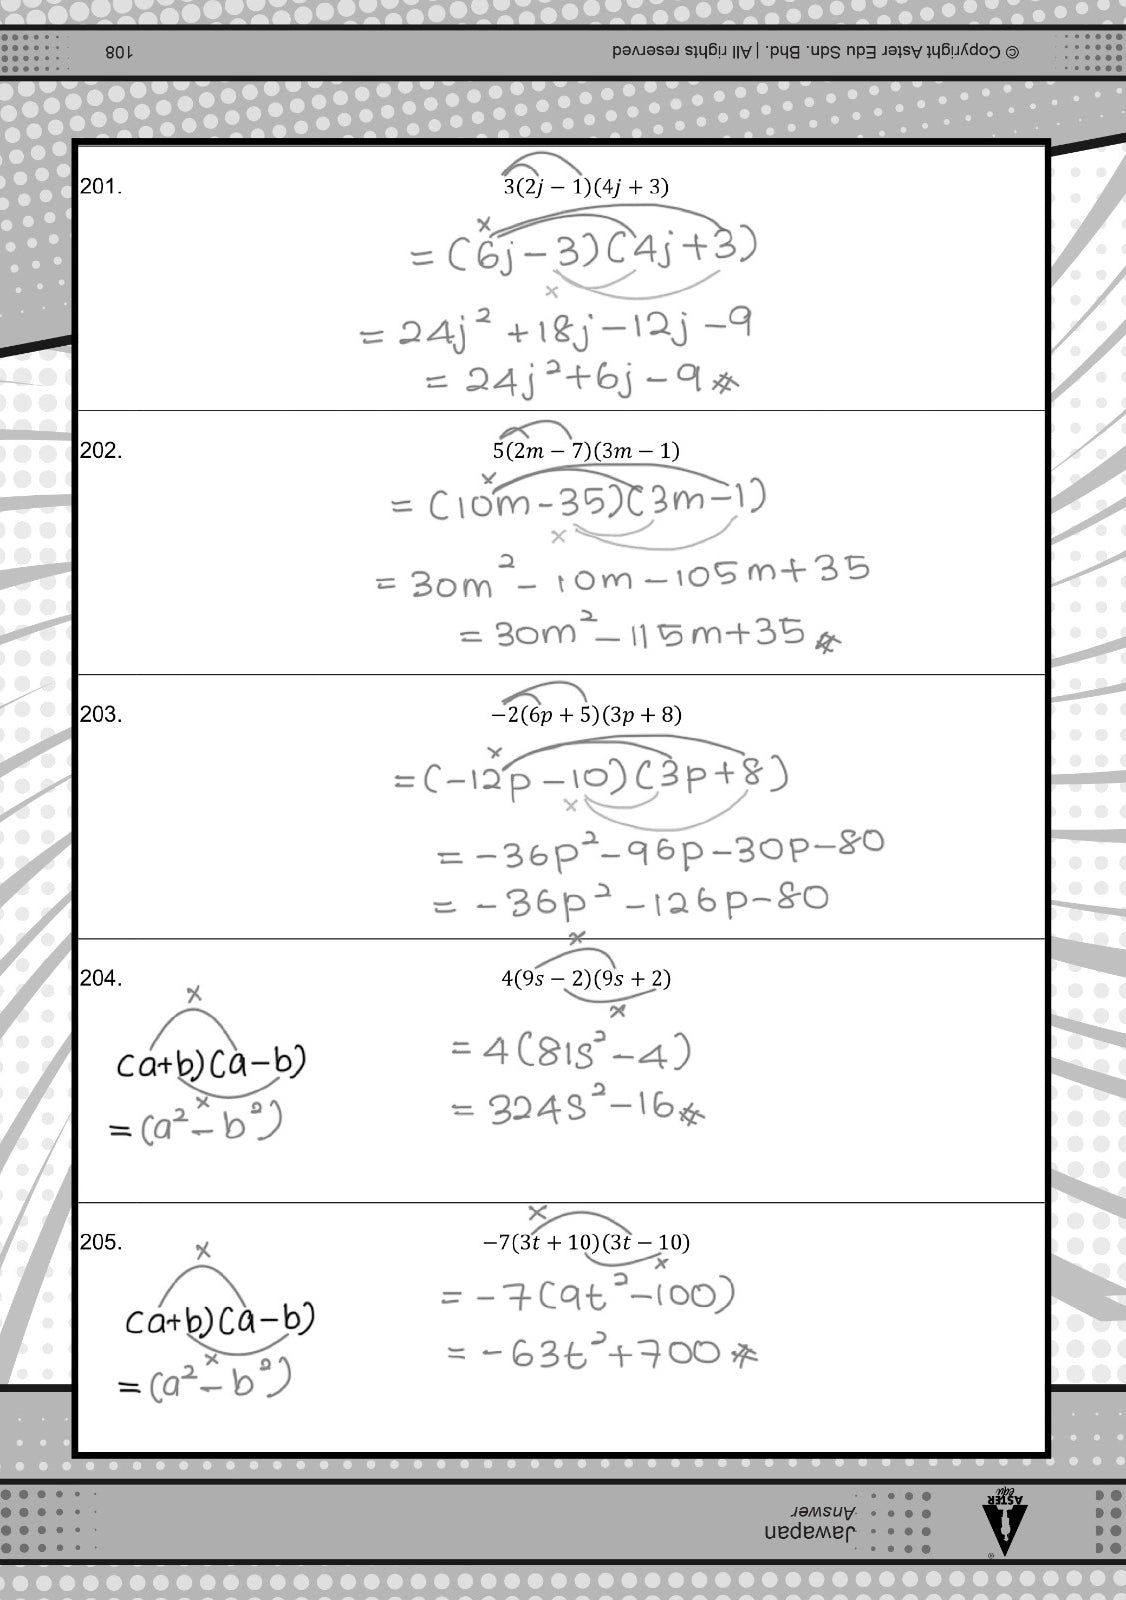 108
© Copyright Aster Edu Sdn. Bhd. | All rights reserved
201.
3(2j − 1)(4j + 3)
×
= (6j − 3)(4j + 3)
×
= 24j² + 18j − 12j − 9
= 24j² + 6j − 9 #
202.
5(2m − 7)(3m − 1)
×
= (10m − 35)(3m − 1)
×
= 30m² − 10m − 105m + 35
= 30m² − 115m + 35 #
203.
−2(6p + 5)(3p + 8)
×
= (−12p − 10)(3p + 8)
×
= −36p² − 96p − 30p − 80
= −36p² − 126p − 80
204.
×
4(9s − 2)(9s + 2)
×
= 4(81s² − 4)
= 324s² − 16 #
×
(a+b)(a−b)
×
= (a² − b²)
205.
×
−7(3t + 10)(3t − 10)
×
= −7(9t² − 100)
= −63t² + 700 #
×
(a+b)(a−b)
×
= (a² − b²)
Jawapan
Answer
ASTER
edu
®